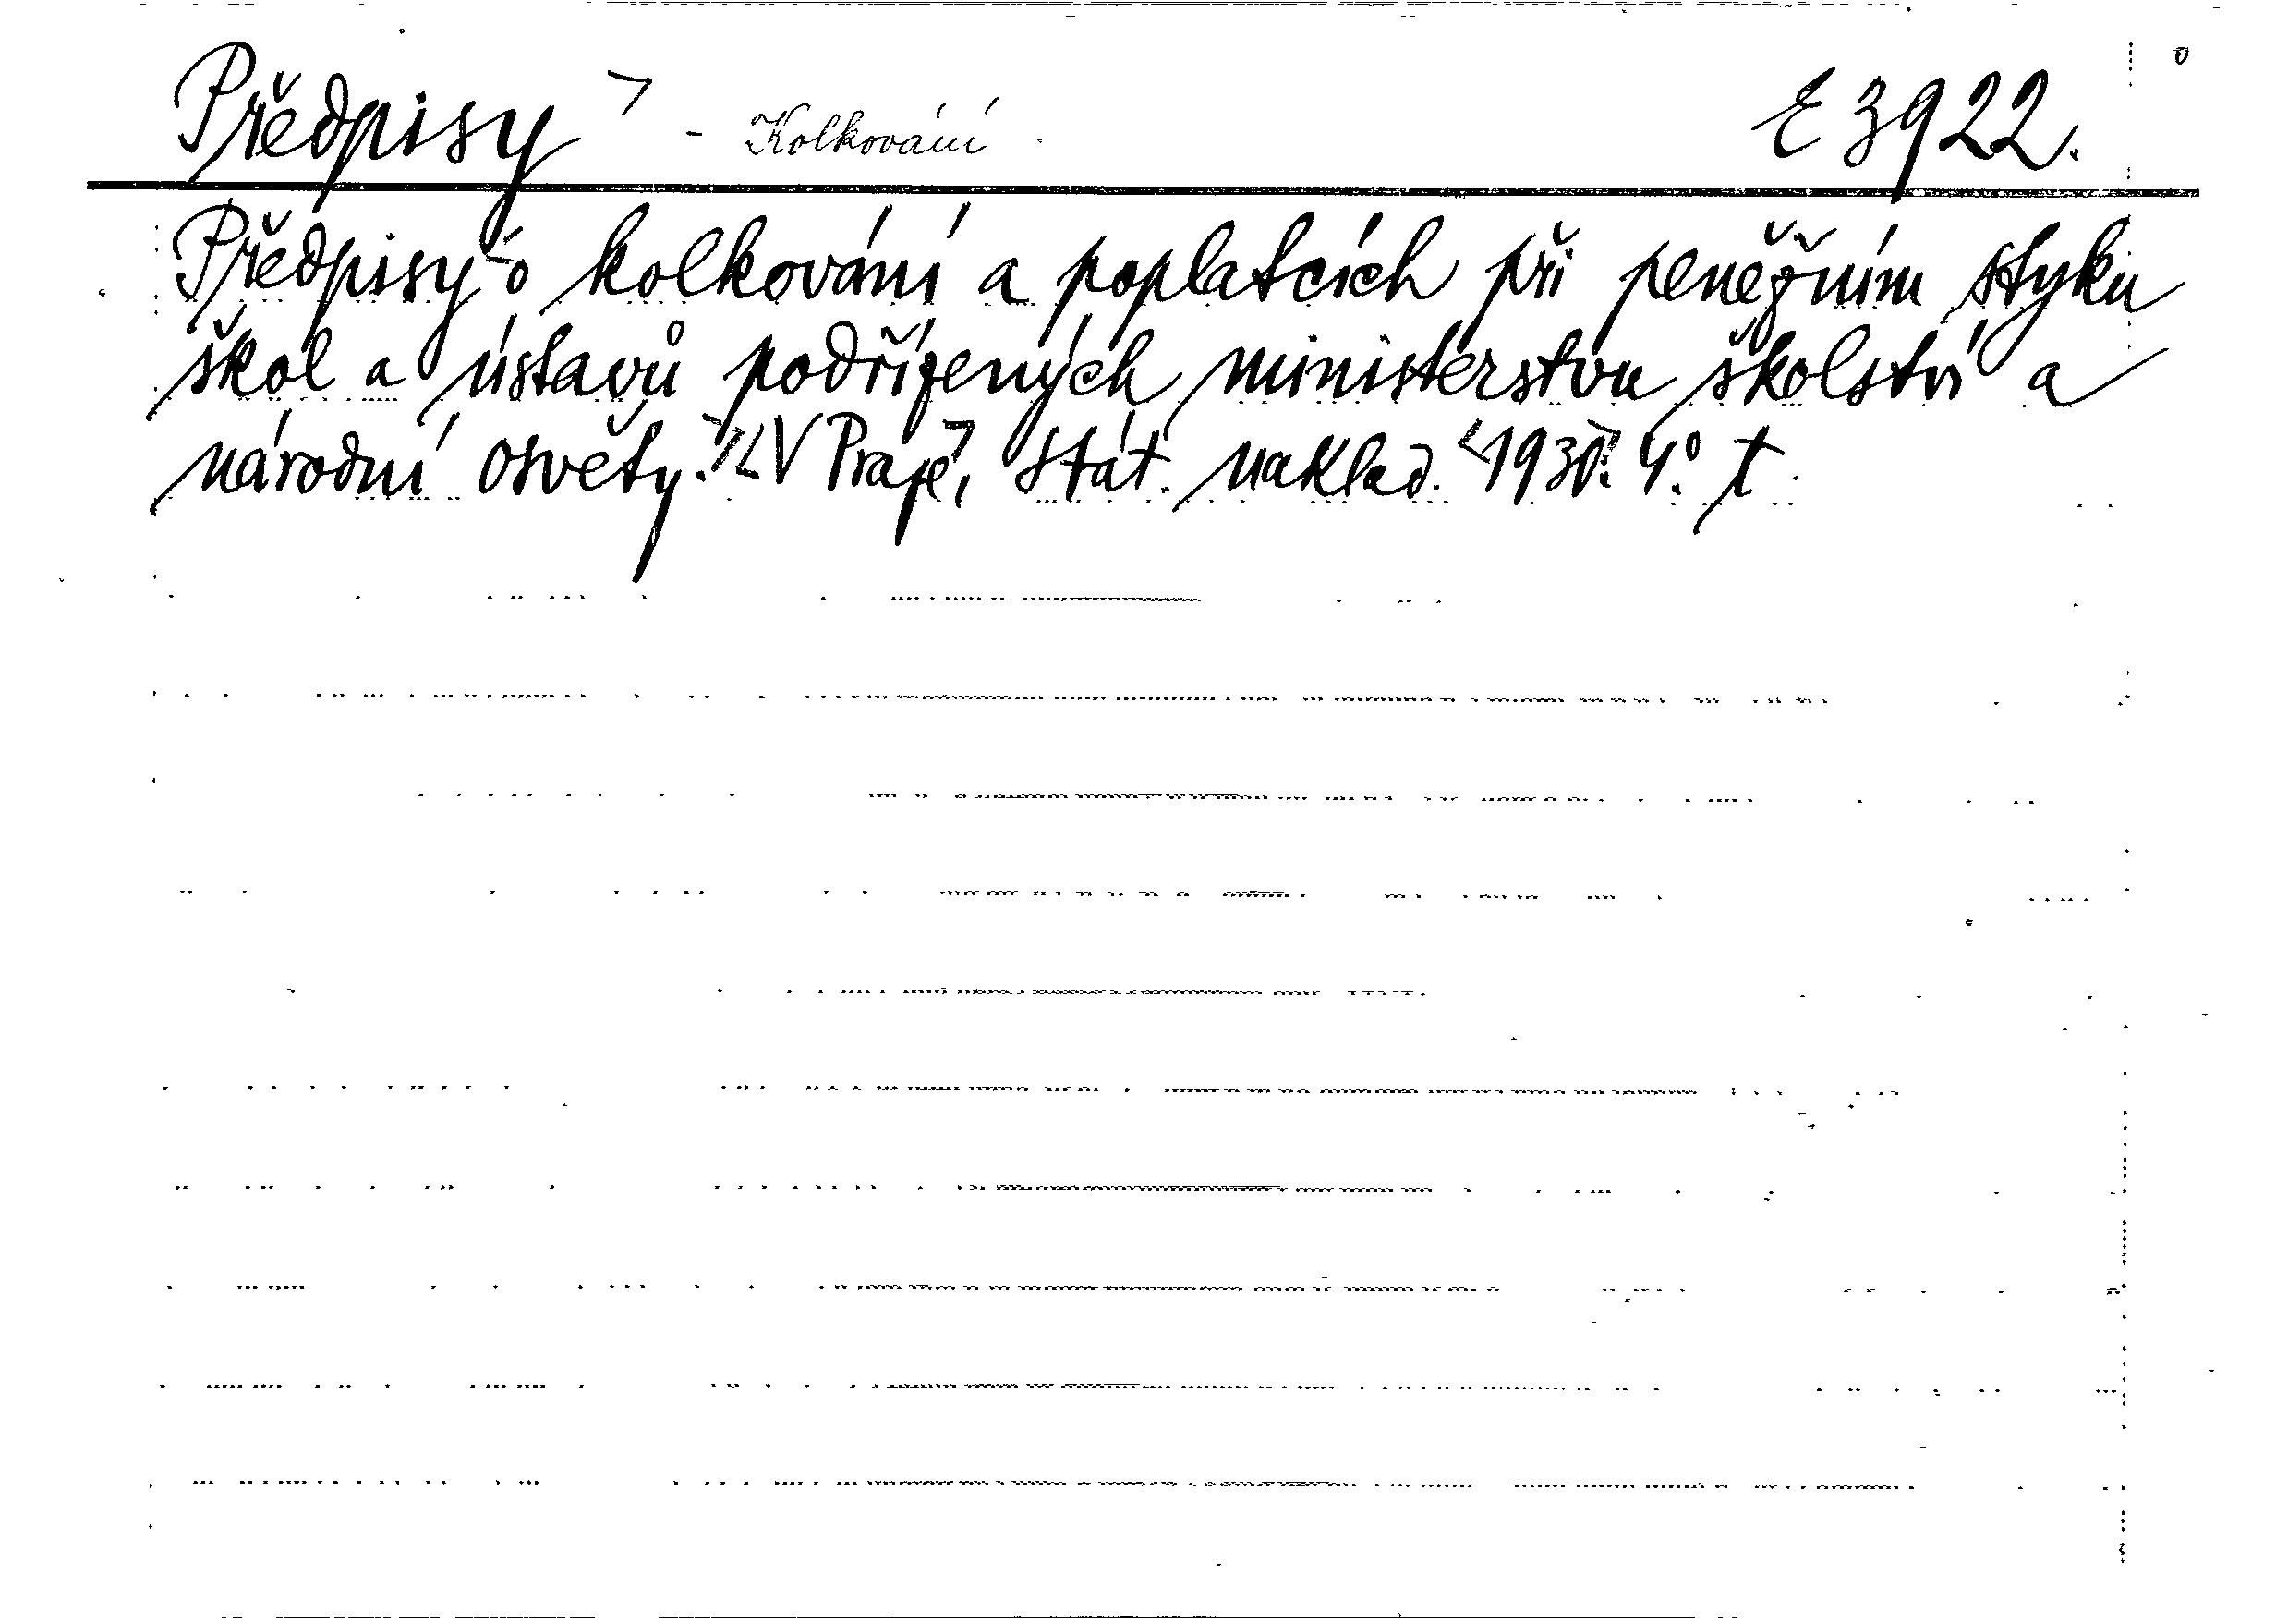 Předpisy - Kolkování E 3922.
Předpisy o kolkování a poplatcích při peněžním styku
škol a ústavů podřízených ministerstvu školství a
národní osvěty. V Praze, Stát. naklad. 1930. 4°.